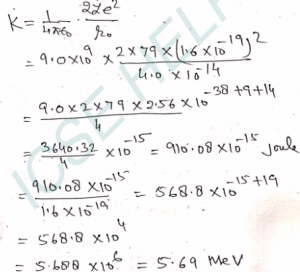 K = 1/4πε₀ · 2Ze²/r₀
= 9.0×10⁹ × 2×79×(1.6×10⁻¹⁹)²/4.0×10⁻¹⁴
= 9.0×2×79×2.56×10⁻³⁸⁺⁹⁺¹⁴/4
= 3640.32/4 ×10⁻¹⁵ = 910.08×10⁻¹⁵ Joule
= 910.08×10⁻¹⁵/1.6×10⁻¹⁹ = 568.8×10⁻¹⁵⁺¹⁹
= 568.8×10⁴
= 5.688×10⁶ = 5.69 MeV
ICSE HELP